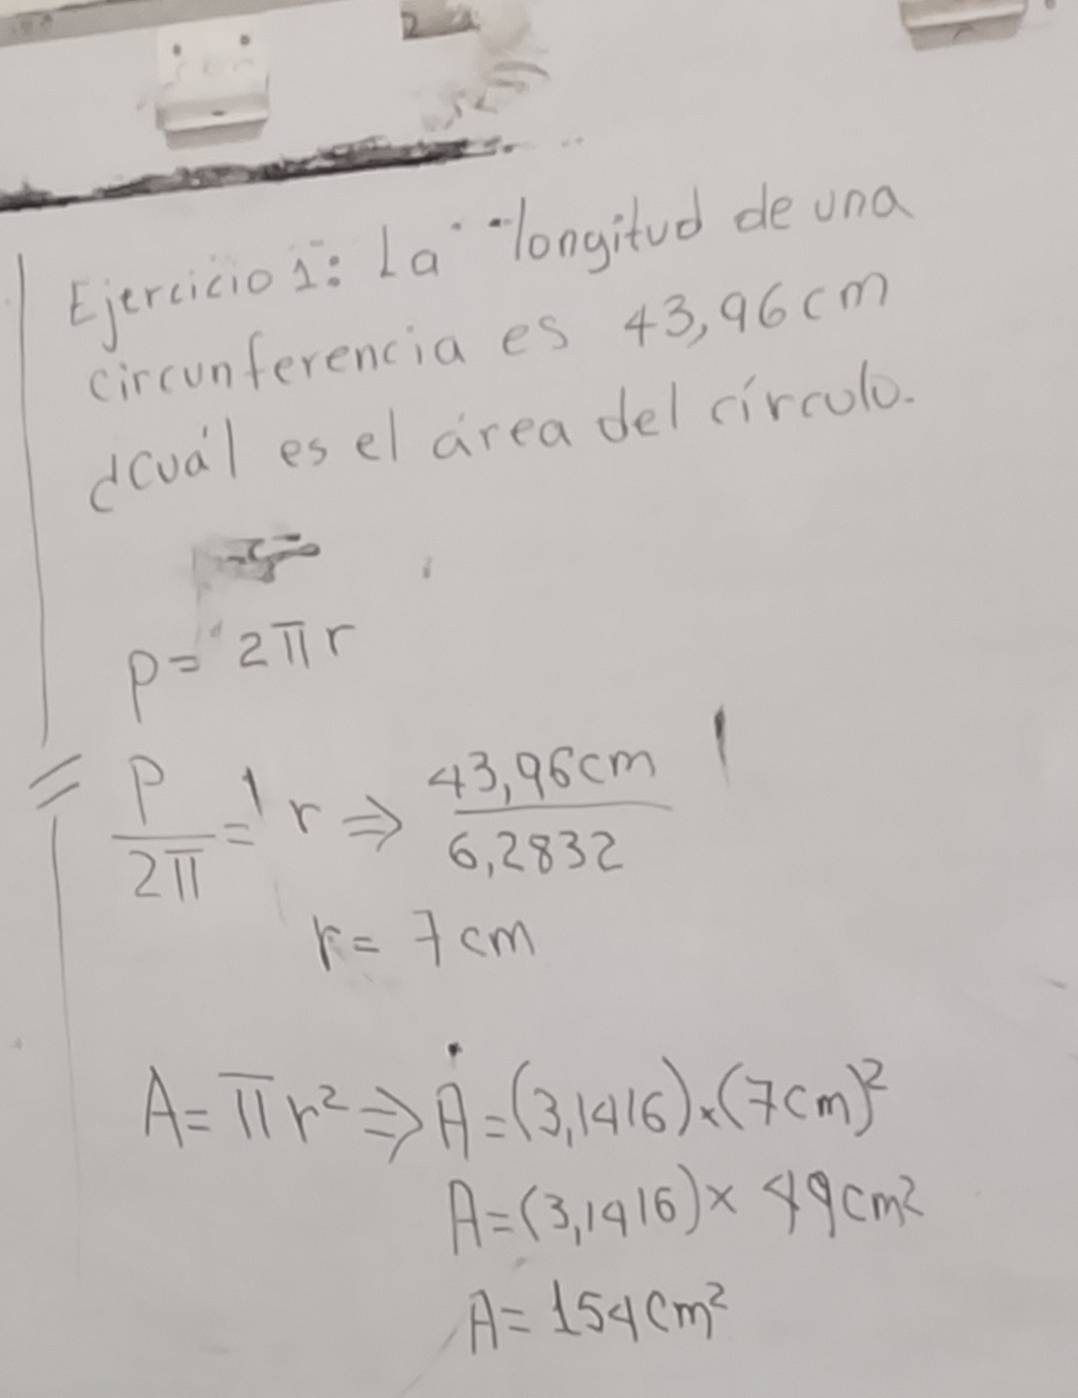 Ejercicio 1: La longitud de una
circunferencia es 43,96 cm
¿cuál es el área del círculo.
P = 2πr
P/2π = r ⇒ 43,96cm/6,2832
r = 7 cm
A = πr² ⇒ A = (3,1416)×(7cm)²
A = (3,1416)× 49cm²
A = 154 cm²